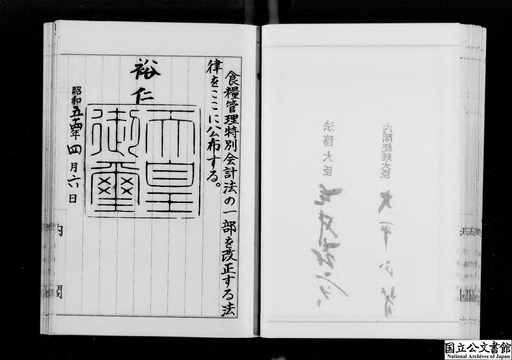 食糧管理特別会計法の一部を改正する法
律をここに公布する。
裕仁
天皇
御璽
昭和五十四年四月六日
内閣
内閣総理大臣
法務大臣
国立公文書館
National Archives of Japan